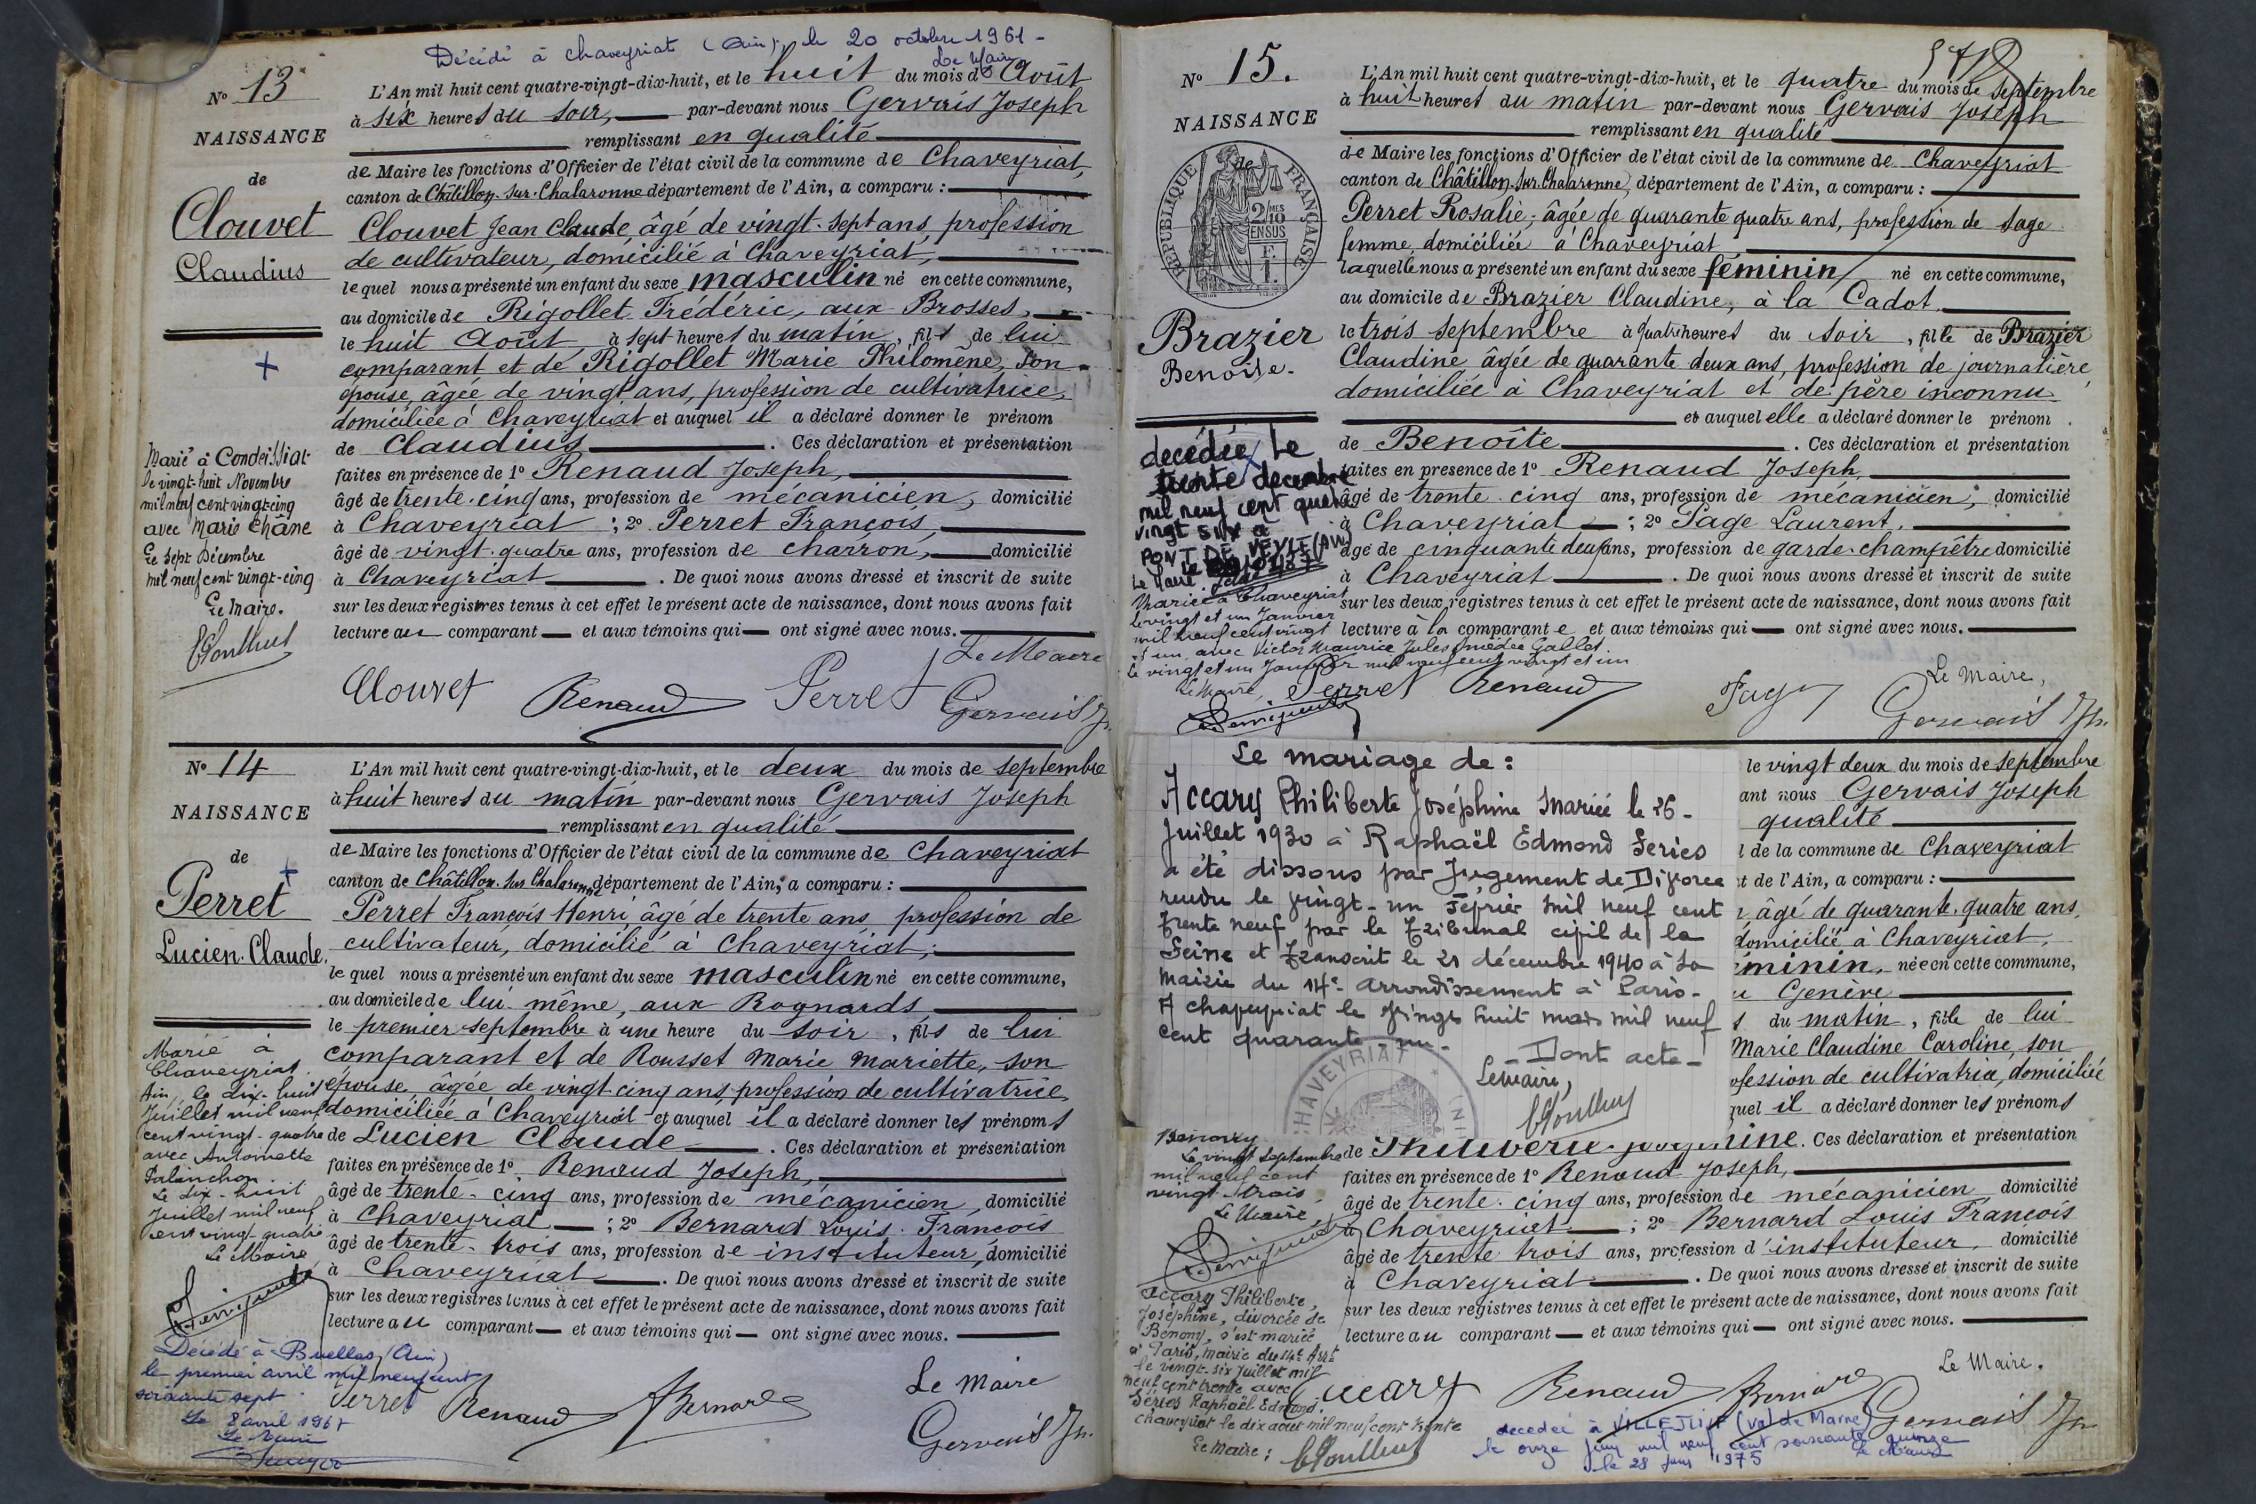 Décédé à Chaveyriat (Ain) le 20 octobre 1961 -
Le Maire
N° 13
NAISSANCE
de
Clouvet
Claudius
L'An mil huit cent quatre-vingt-dix-huit, et le huit du mois d Août
à six heures du soir, par-devant nous Gervais Joseph
remplissant en qualité
de Maire les fonctions d'Officier de l'état civil de la commune de Chaveyriat,
canton de Châtillon-sur-Chalaronne département de l'Ain, a comparu :
Clouvet Jean Claude âgé de vingt-sept ans, profession
de cultivateur, domicilié à Chaveyriat,
lequel nous a présenté un enfant du sexe masculin né en cette commune,
au domicile de Rigollet Frédéric, aux Brosses,
le huit Août à sept heures du matin, fils de lui
comparant et de Rigollet Marie Philomène, son
épouse, âgée de vingt ans, profession de cultivatrice,
domiciliée à Chaveyriat et auquel il a déclaré donner le prénom
de Claudius. Ces déclaration et présentation
faites en présence de 1° Renaud Joseph,
âgé de trente-cinq ans, profession de mécanicien, domicilié
à Chaveyriat ; 2° Perret François,
âgé de vingt-quatre ans, profession de charron, domicilié
à Chaveyriat. De quoi nous avons dressé et inscrit de suite
sur les deux registres tenus à cet effet le présent acte de naissance, dont nous avons fait
lecture au comparant et aux témoins qui ont signé avec nous.
Marié à Condeissiat
le vingt-huit Novembre
mil neuf cent vingt-cinq
avec Marie Châne
Le sept Décembre
mil neuf cent vingt-cinq
Le Maire.
Le Maire
Clouvet Renaud Perret Gervais Jh.
N° 14
NAISSANCE
de
Perret
Lucien-Claude.
L'An mil huit cent quatre-vingt-dix-huit, et le deux du mois de septembre
à huit heures du matin par-devant nous Gervais Joseph
remplissant en qualité
de Maire les fonctions d'Officier de l'état civil de la commune de Chaveyriat
canton de Châtillon-sur-Chalaronne département de l'Ain, a comparu :
Perret François Henri âgé de trente ans, profession de
cultivateur, domicilié à Chaveyriat,
lequel nous a présenté un enfant du sexe masculin né en cette commune,
au domicile de lui-même, aux Rognards
le premier septembre à une heure du soir, fils de lui
comparant et de Rousset Marie Mariette, son
épouse, âgée de vingt-cinq ans, profession de cultivatrice
domiciliée à Chaveyriat et auquel il a déclaré donner les prénoms
de Lucien Claude. Ces déclaration et présentation
faites en présence de 1° Renaud Joseph,
âgé de trente-cinq ans, profession de mécanicien, domicilié
à Chaveyriat ; 2° Bernard Louis François
âgé de trente-trois ans, profession de instituteur, domicilié
à Chaveyriat. De quoi nous avons dressé et inscrit de suite
sur les deux registres tenus à cet effet le présent acte de naissance, dont nous avons fait
lecture au comparant et aux témoins qui ont signé avec nous.
Marié à
Chaveyriat
Ain, le dix-huit
Juillet mil neuf
cent vingt-quatre
avec Antoinette
Palanchon.
Le dix-huit
Juillet mil neuf
cent vingt-quatre
Le Maire
Décédé à Buellas (Ain)
le premier avril mil neuf cent
soixante sept
Le 8 avril 1967
Le Maire
Perret Renaud Bernard
Le Maire
Gervais Jh.
N° 15.
NAISSANCE
de
RÉPUBLIQUE FRANÇAISE
2/10 MES
EN SUS
Brazier
Benoîte.
L'An mil huit cent quatre-vingt-dix-huit, et le quatre du mois de Septembre
à huit heures du matin par-devant nous Gervais Joseph
remplissant en qualité
de Maire les fonctions d'Officier de l'état civil de la commune de Chaveyriat
canton de Châtillon-sur-Chalaronne, département de l'Ain, a comparu :
Perret Rosalie, âgée de quarante quatre ans, profession de sage
femme, domiciliée à Chaveyriat
laquelle nous a présenté un enfant du sexe féminin né en cette commune,
au domicile de Brazier Claudine, à la Cadot
le trois septembre à quatre heures du soir, fille de Brazier
Claudine âgée de quarante deux ans, profession de journalière,
domiciliée à Chaveyriat et de père inconnu
et auquel elle a déclaré donner le prénom
de Benoîte. Ces déclaration et présentation
faites en présence de 1° Renaud Joseph,
âgé de trente-cinq ans, profession de mécanicien, domicilié
à Chaveyriat ; 2° Page Laurent,
âgé de cinquante deux ans, profession de garde-champêtre domicilié
à Chaveyriat. De quoi nous avons dressé et inscrit de suite
sur les deux registres tenus à cet effet le présent acte de naissance, dont nous avons fait
lecture à la comparante et aux témoins qui ont signé avec nous.
decédée Le
trente decembre
mil neuf cent quatre
vingt six à
PONT DE VEYLE (AIN)
Le Maire
Mariée à Chaveyriat
le vingt et un Janvier
mil neuf cent vingt
et un avec Victor Maurice Jules Amédée Gallet.
Le vingt et un Janvier mil neuf cent vingt et un
Le Maire,
Perret Renaud Page
Le Maire,
Gervais Jh.
Le mariage de :
Accary Philiberte Joséphine Mariée le 26
Juillet 1930 à Raphaël Edmond Series
a été dissous par Jugement de Divorce
rendu le vingt-un Février mil neuf cent
trente neuf par le Tribunal civil de la
Seine et transcrit le 21 décembre 1940 à la
Mairie du 14e arrondissement à Paris -
A chaveyriat le vingt huit mars mil neuf
cent quarante-un -
- Dont acte -
Le maire,
CHAVEYRIAT
le vingt deux du mois de septembre
ant nous Gervais Joseph
qualité
l de la commune de Chaveyriat
t de l'Ain, a comparu :
âgé de quarante-quatre ans,
domicilié à Chaveyriat,
éminin, née en cette commune,
Genève
du matin, fille de lui
Marie Claudine Caroline, son
ofession de cultivatrice, domiciliée
quel il a déclaré donner les prénoms
de Philiberte Joséphine. Ces déclaration et présentation
faites en présence de 1° Renaud Joseph,
âgé de trente-cinq ans, profession de mécanicien domicilié
à Chaveyriat ; 2° Bernard Louis François
âgé de trente trois ans, profession d'instituteur, domicilié
à Chaveyriat. De quoi nous avons dressé et inscrit de suite
sur les deux registres tenus à cet effet le présent acte de naissance, dont nous avons fait
lecture au comparant et aux témoins qui ont signé avec nous.
Le vingt septembre
mil neuf cent
vingt-trois
Le Maire
Accary Philiberte,
Joséphine, divorcée de
Benony, s'est mariée
à Paris, mairie du 14e Arrt
le vingt-six Juillet mil
neuf cent trente avec
Séries Raphaël Edmond.
Chaveyriat le dix août mil neuf cent trente
Le Maire :
Accary Renaud Bernard
Le Maire.
Gervais Jh.
decedée à VILLEJUIF (Val de Marne)
le onze juin mil neuf cent soixante quinze
le 28 juin 1975
Le Maire